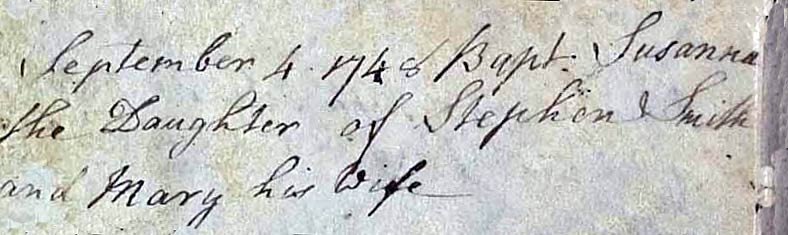 September 4 1748 Bapt. Susanna
the Daughter of Stephen Smith
and Mary his wife